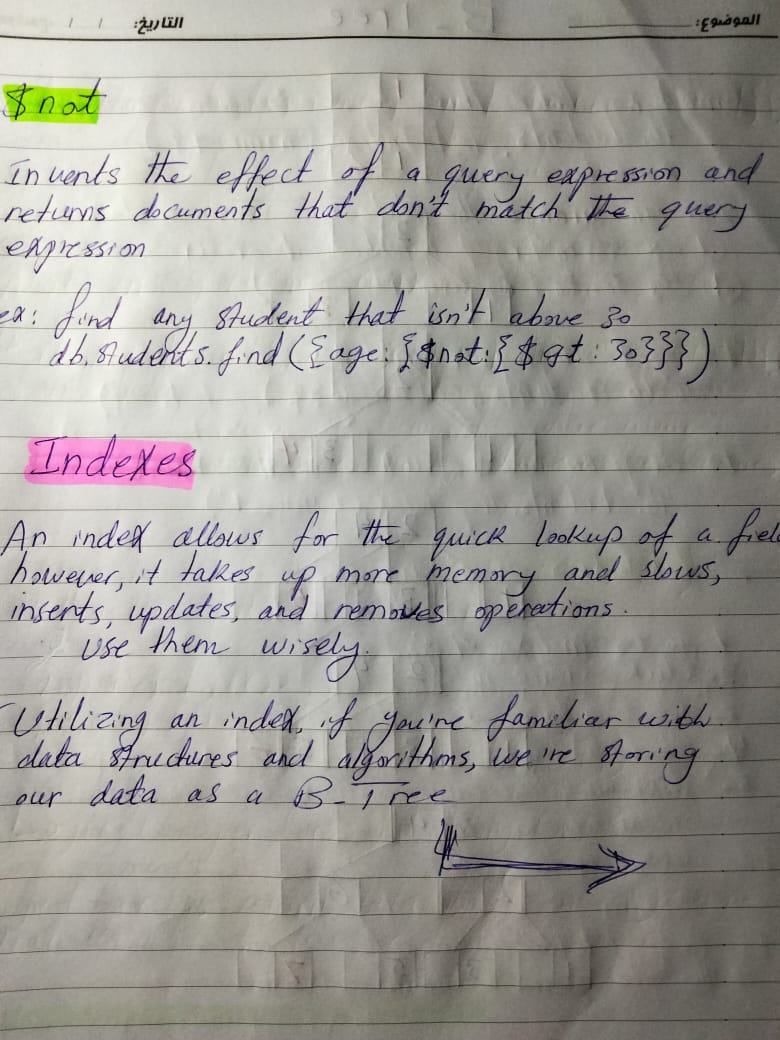 الموضوع:
التاريخ: / /
$not
Inverts the effect of a query expression and
returns documents that don't match the query
expression
ex: find any student that isn't above 30
db.students.find({age:{$not:{$gt:30}}})
Indexes
An index allows for the quick lookup of a field
however, it takes up more memory and slows,
inserts, updates, and removes operations.
Use them wisely.
Utilizing an index, if you're familiar with
data structures and algorithms, we're storing
our data as a B-Tree